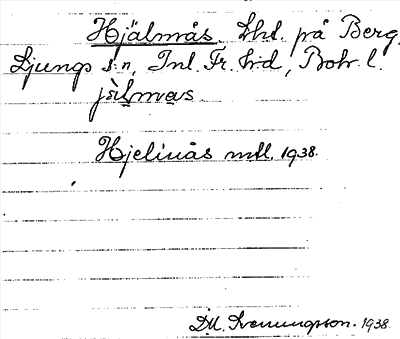 Hjälmås Lht. på Berg,
Ljungs s:n, Inl. Fr. h:d, Boh. l.
jä̀lmas
Hjelmås mtl. 1938.
D.U. Svenungsson. 1938.